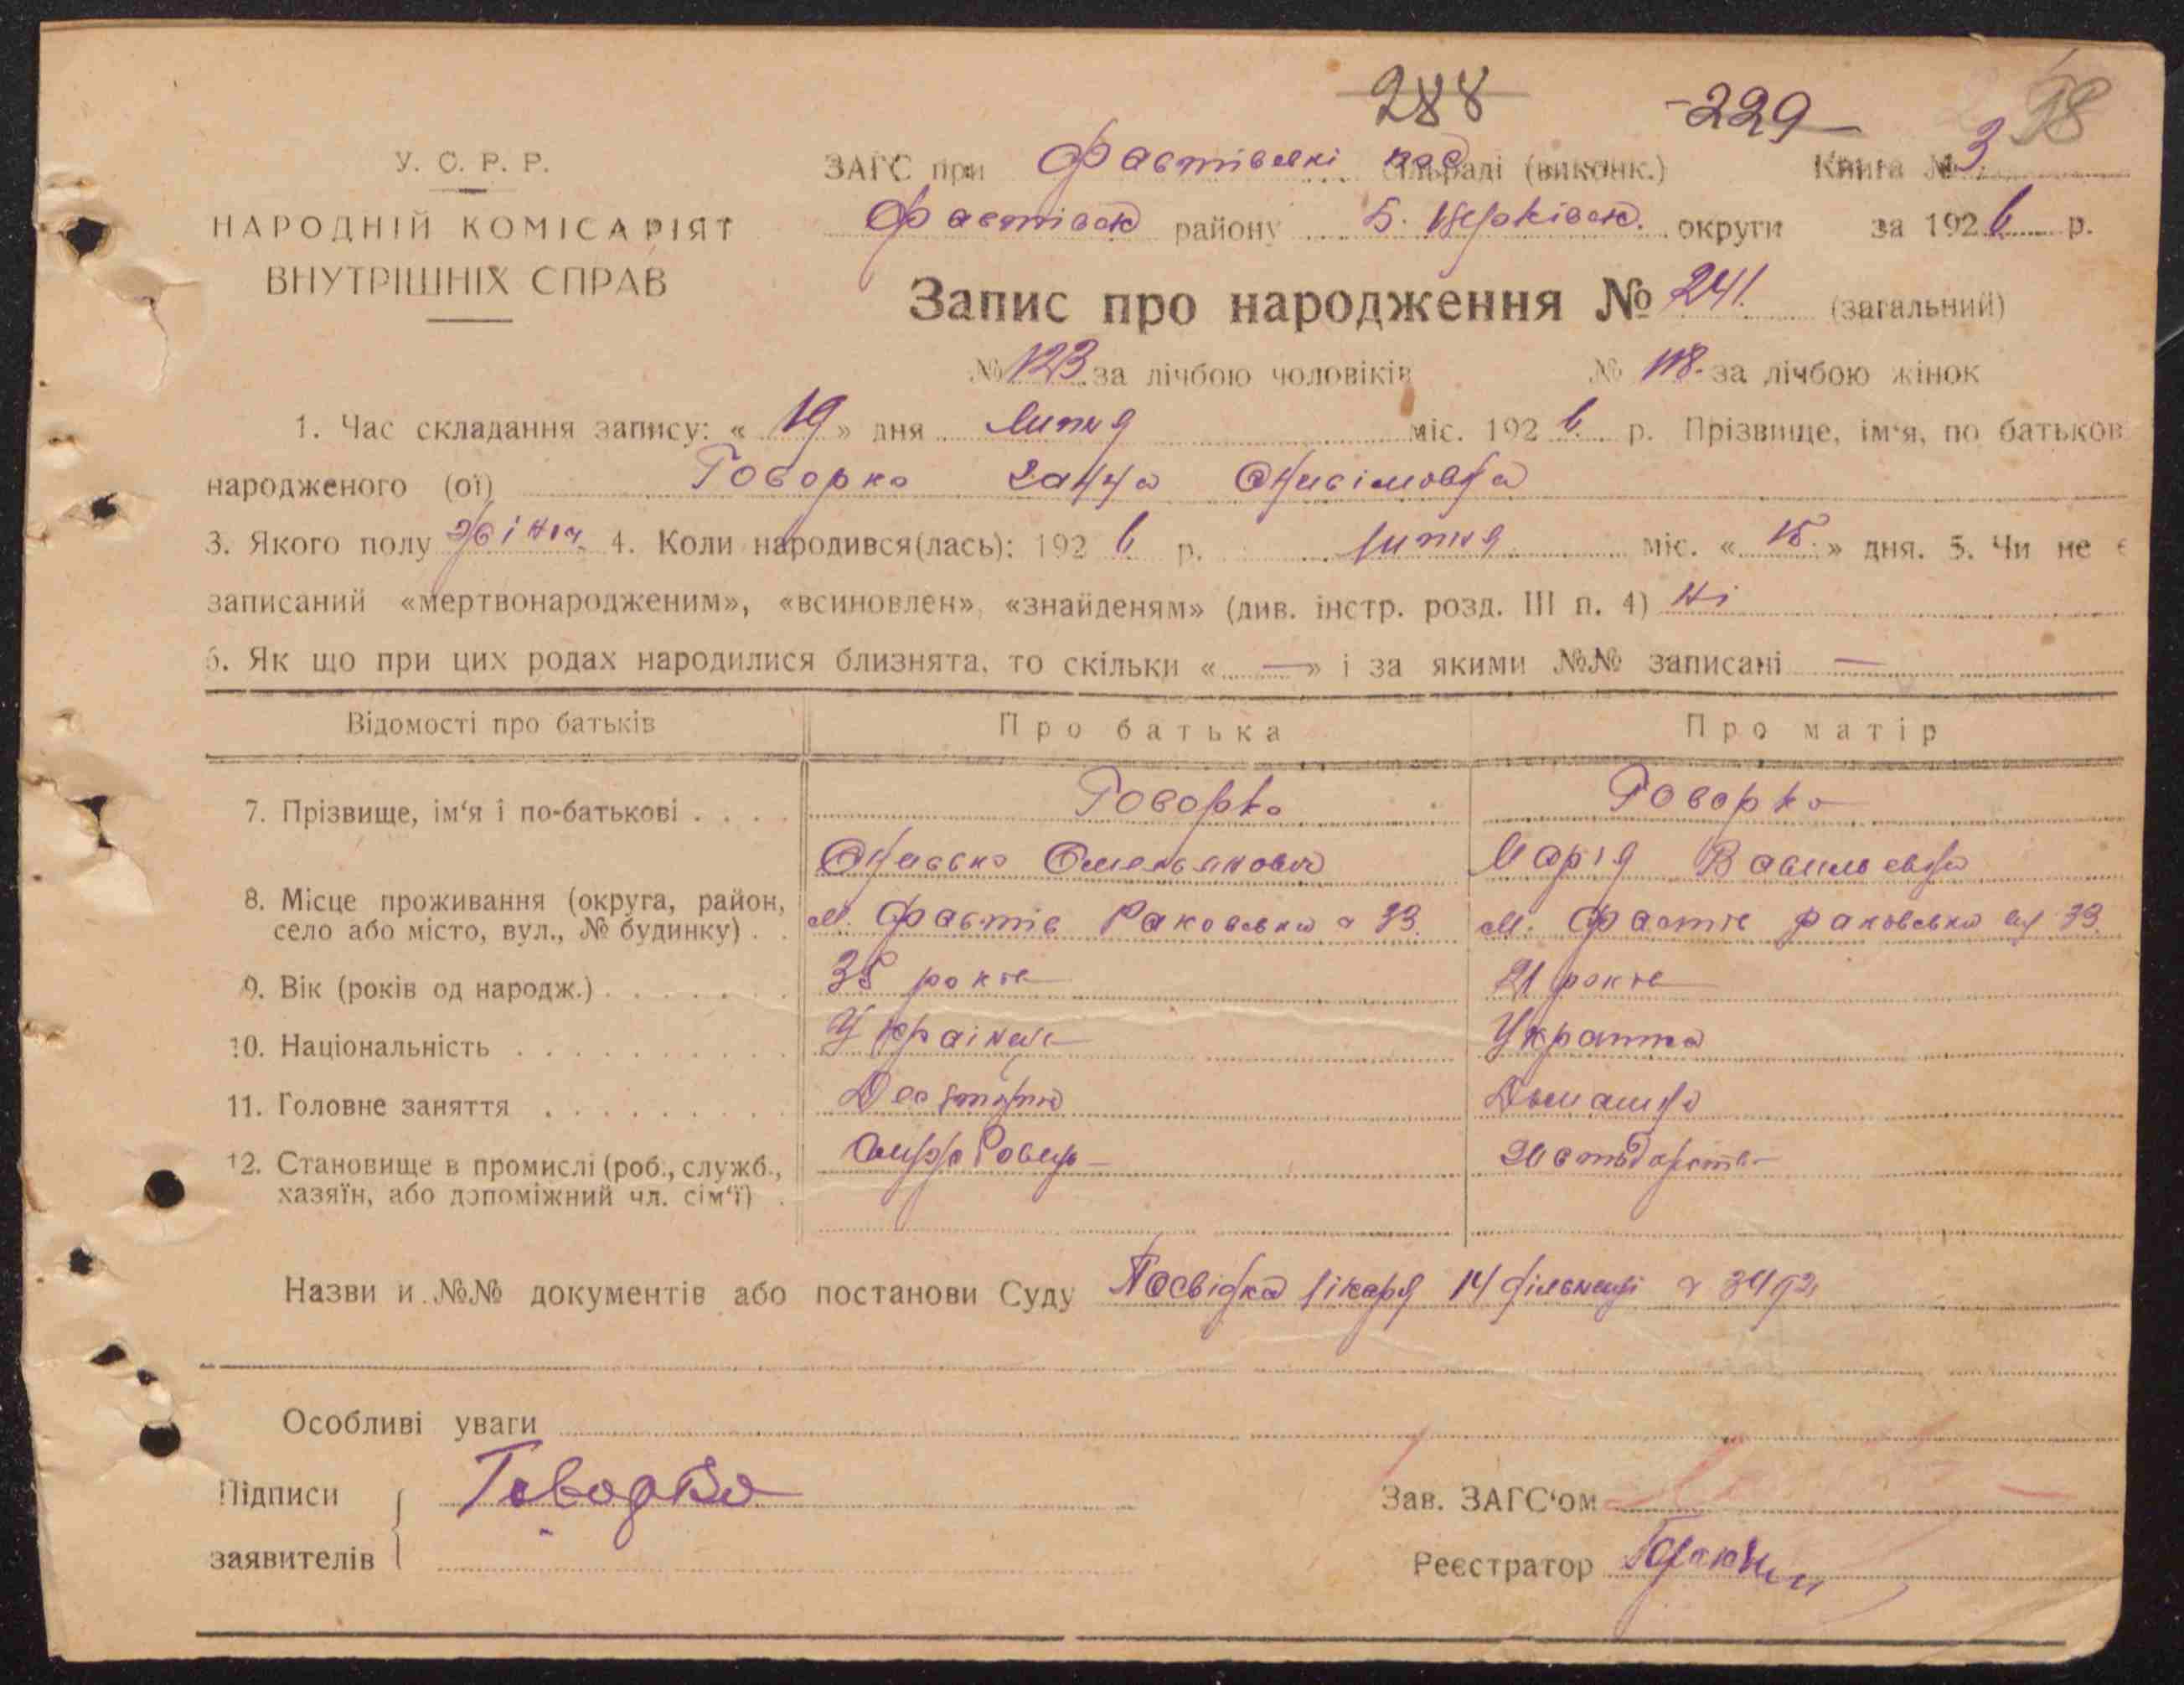 288 -229- 98
У. С. Р. Р.
НАРОДНІЙ КОМІСАРІЯТ
ВНУТРІШНІХ СПРАВ
ЗАГС при Фастівскі рай сільраді (виконк.) Книга № 3
Фастівск району Б. Церківск. округи за 1926 р.
Запис про народження № 241. (загальний)
№ 123 за лічбою чоловіків № 118. за лічбою жінок
1. Час складання запису: « 19 » дня Липня міс. 1926 р. Прізвище, ім‘я, по батьков
народженого (ої) Говорко Ганна Онисімовна
3. Якого полу жіноч. 4. Коли народився(лась): 1926 р. липня міс. « 15. » дня. 5. Чи не є
записаний «мертвонародженим», «всиновлен», «знайденям» (див. інстр. розд. III п. 4) Ні
6. Як що при цих родах народилися близнята, то скільки « — » і за якими №№ записані —
Відомості про батьків Про батька Про матір
7. Прізвище, ім‘я і по-батькові Говорко Говорко
Онисько Омельянович Марія Васильевна
8. Місце проживання (округа, район, село або місто, вул., № будинку) м. Фастів Раковська 33. м. Фастів Раковська 33.
9. Вік (років од народж.) 35 років 21 років
10. Національність Українец Украінка
11. Головне заняття Домашнє
12. Становище в промислі (роб., служб., хазяїн, або допоміжний чл. сім‘ї) господарство
Назви и №№ документів або постанови Суду Посвідка лікаря 14 дільниці
Особливі уваги
Підписи заявителів Говорко
Зав. ЗАГС‘ом
Реєстратор